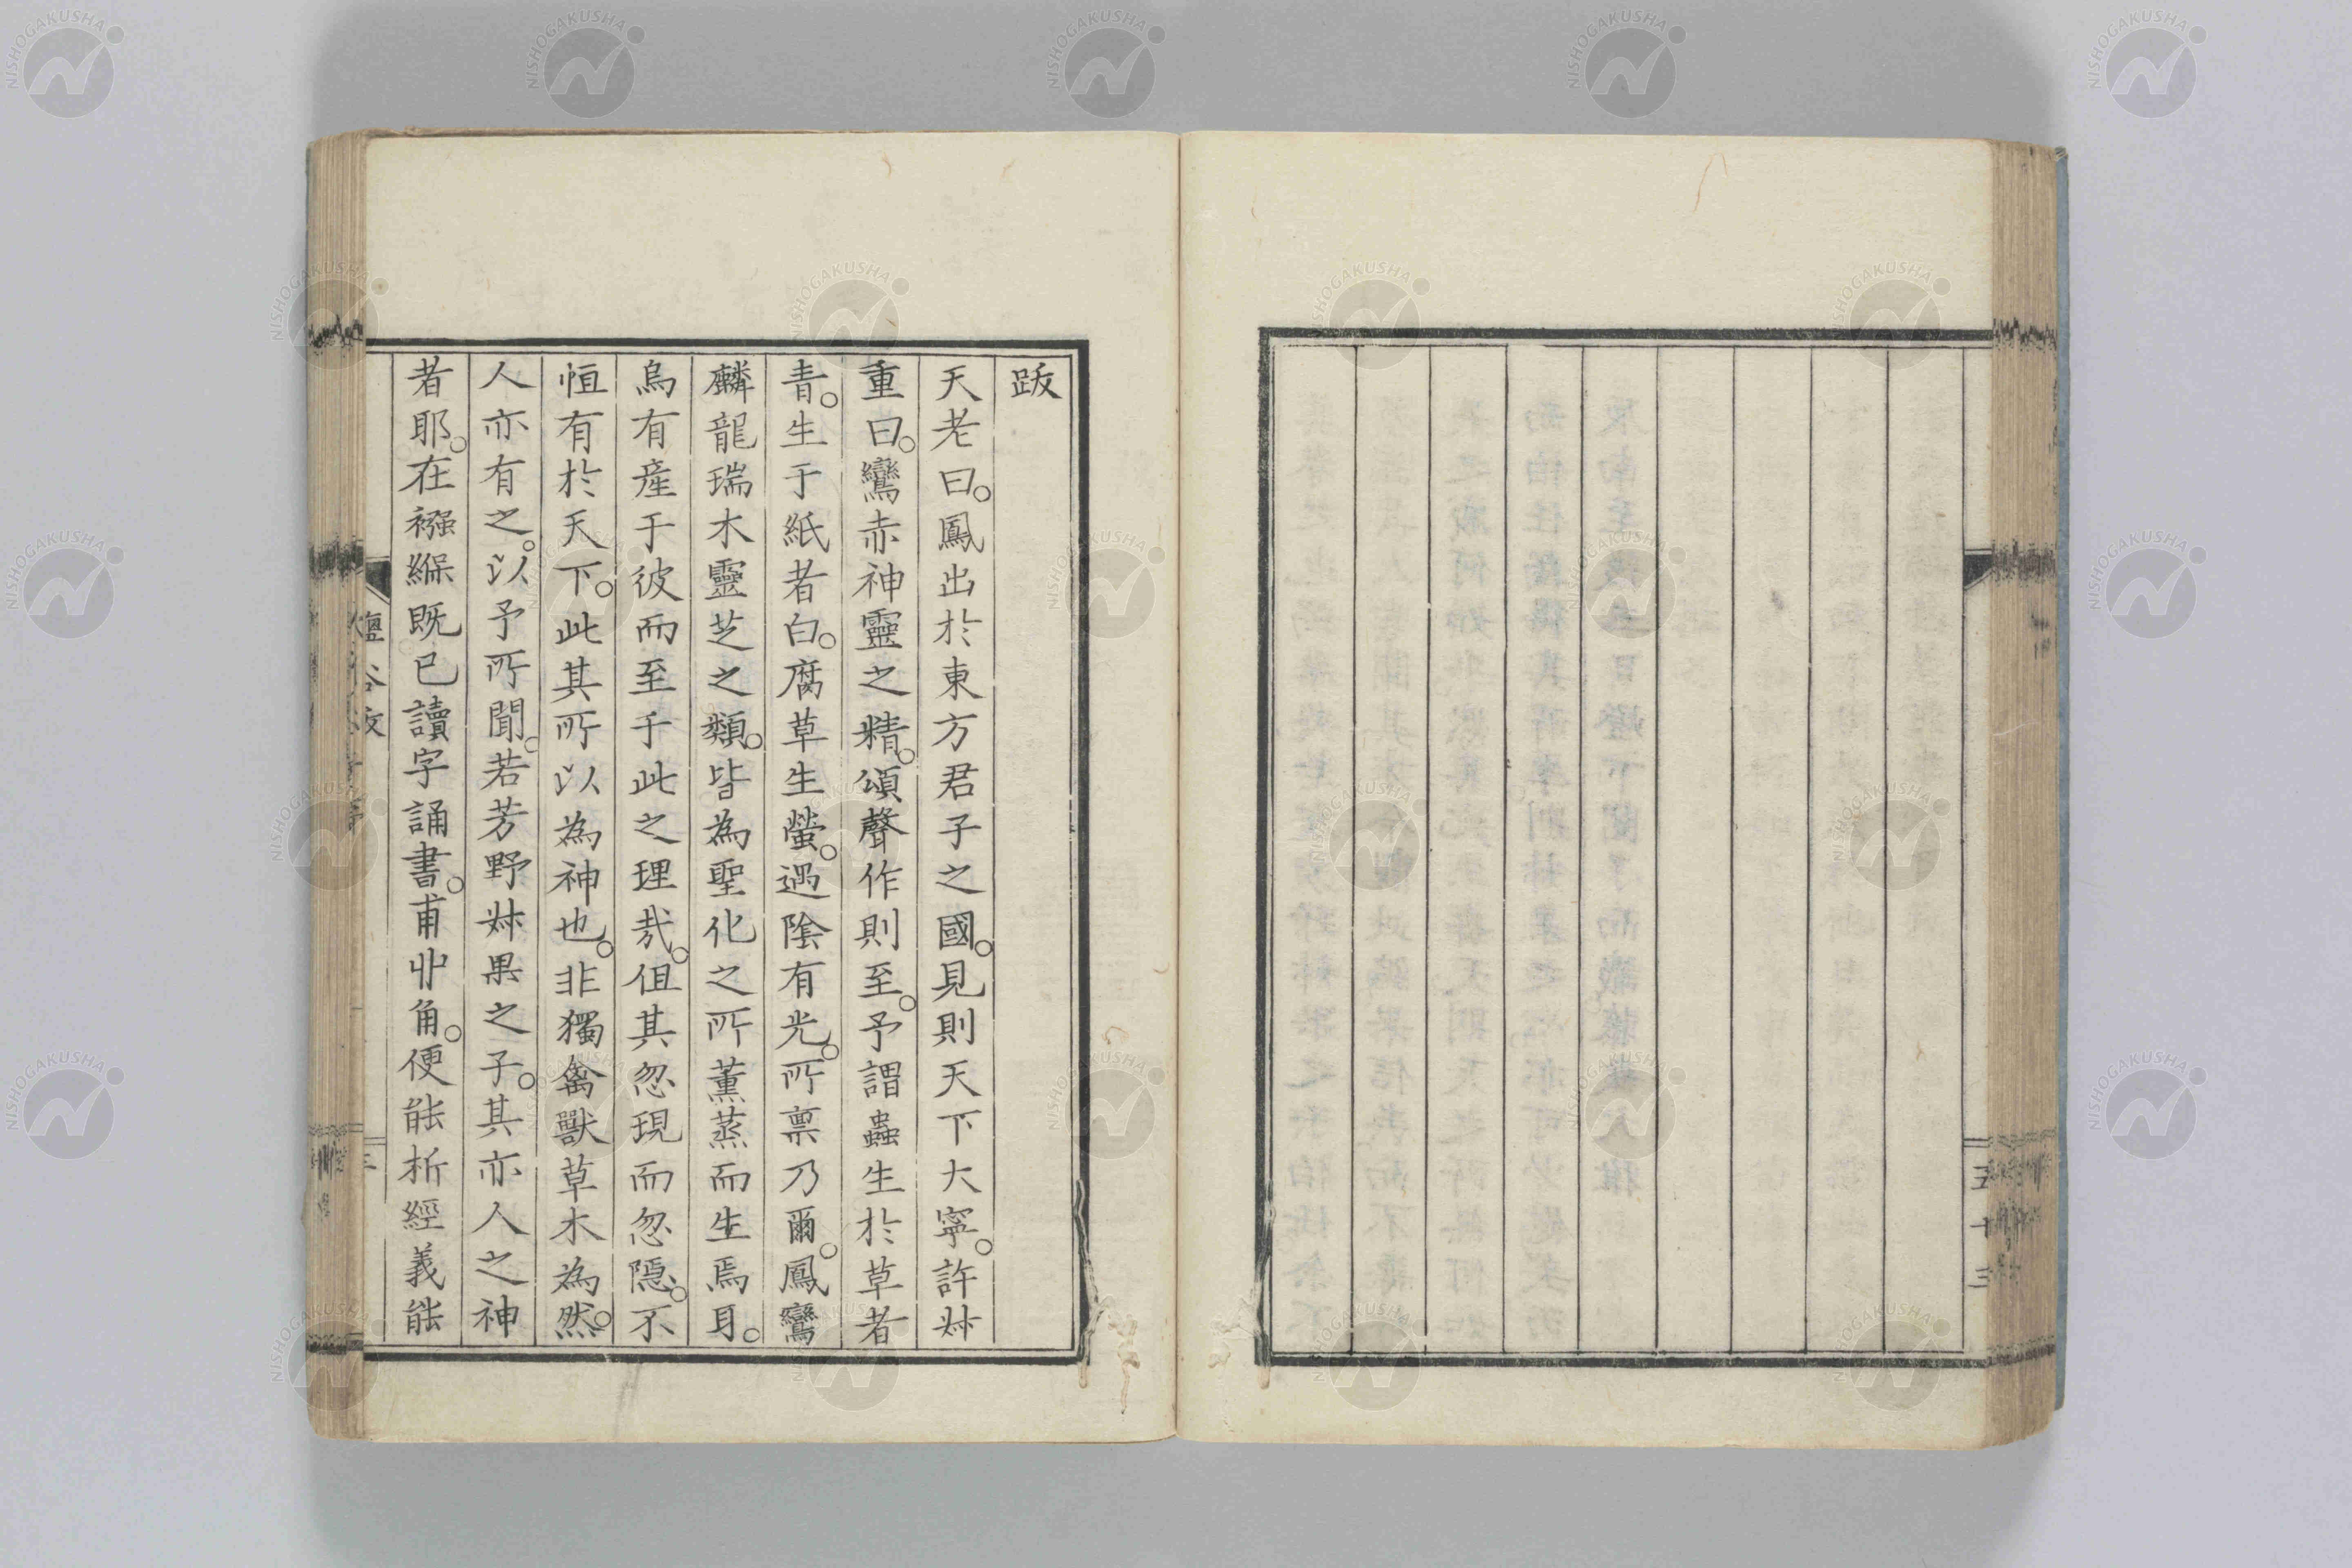 跋
天老曰。鳳出於東方君子之國。見則天下大寧。許叔
重曰。鸞赤神靈之精。頌聲作則至。予謂蟲生於草者
青。生于紙者白。腐草生螢。遇陰有光。所禀乃爾。鳳鸞
麟龍瑞木靈芝之類。皆為聖化之所薰蒸而生焉耳。
烏有産于彼而至于此之理哉。但其忽現而忽隠。不
恒有於天下。此其所以為神也。非獨禽獸草木為然。
人亦有之。以予所聞。若芳野叔果之子。其亦人之神
者耶。在襁緥既已讀字誦書。甫丱角。便能析經義能
五十三
NISHOGAKUSHA